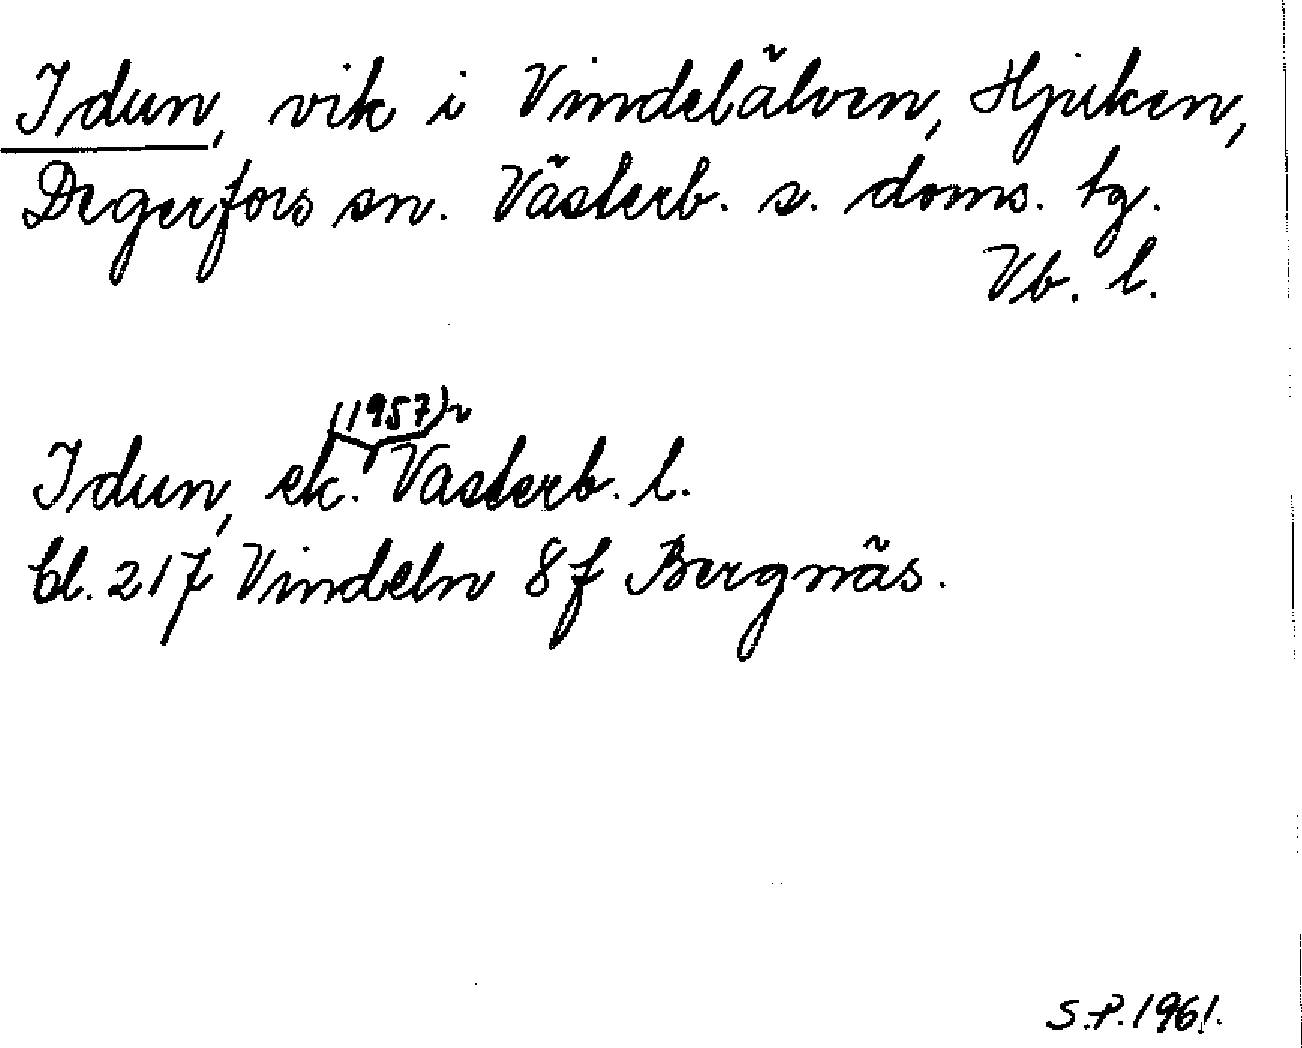 Idun, vik i Vindelälven, Hjuken,
Degerfors sn. Västerb. s. doms. tg.
Vb. l.
(1957)
Idun, ek. Västerb. l.
bl. 217 Vindeln 8f Bergnäs.
S.P. 1961.